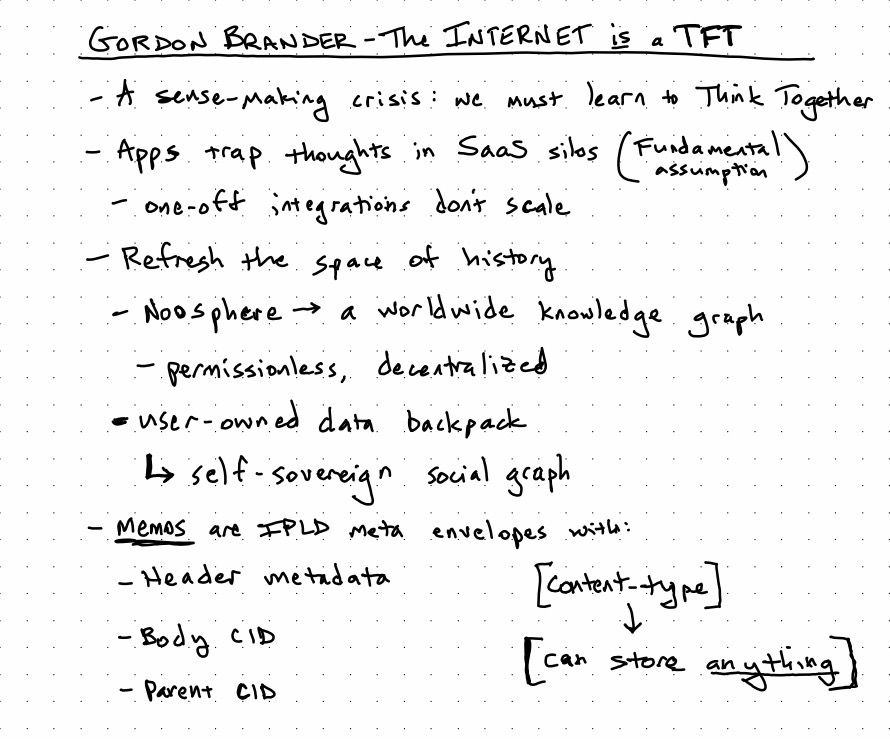 GORDON BRANDER - The INTERNET is a TFT
- A sense-making crisis: we must learn to Think Together
- Apps trap thoughts in SaaS silos (Fundamental assumption)
- one-off integrations don't scale
- Refresh the space of history
- Noosphere → a worldwide knowledge graph
- permissionless, decentralized
- user-owned data backpack
↳ self-sovereign social graph
- Memos are IPLD meta envelopes with:
- Header metadata
- Body CID
- Parent CID
[content-type]
↓
[can store anything]